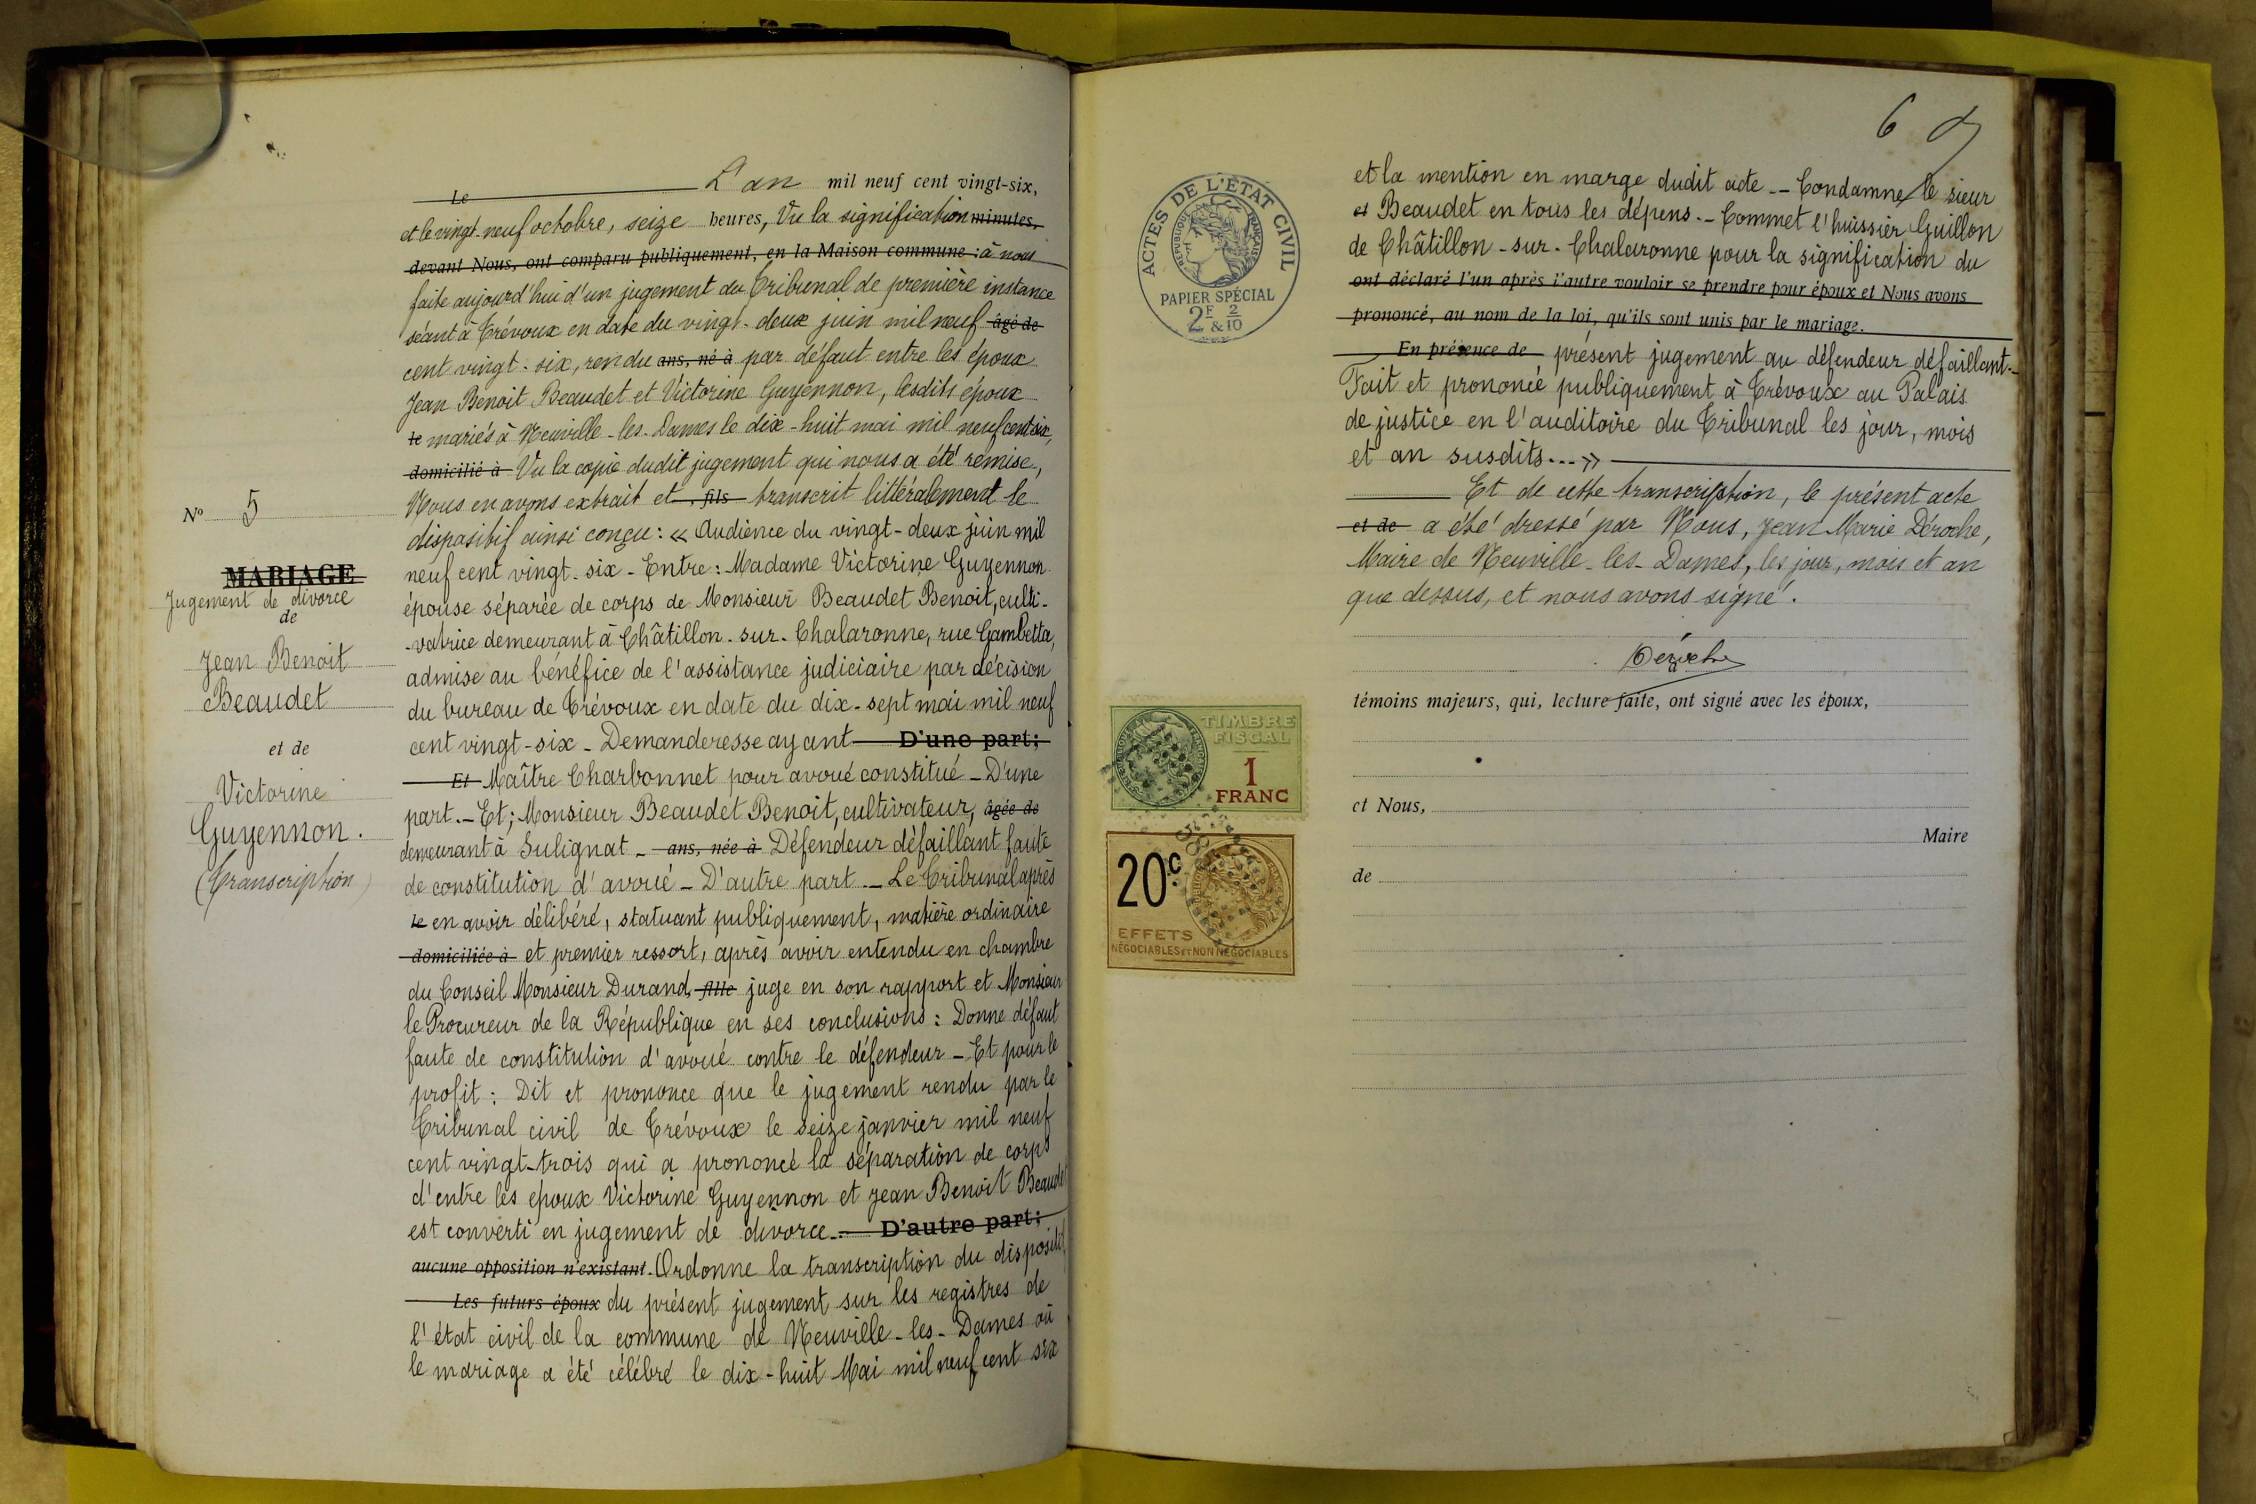 Le L'an mil neuf cent vingt-six,
et le vingt-neuf octobre, seize heures, Vu la signification minutes,
devant Nous, ont comparu publiquement, en la Maison commune : à nous
faite aujourd'hui d'un jugement du Tribunal de première instance
séant à Trévoux en date du vingt-deux juin mil neuf âgé de
cent vingt-six, rendu ans, né à par défaut entre les époux
Jean Benoit Beaudet et Victorine Guyennon, lesdits époux
le mariés à Neuville-les-Dames le dix-huit mai mil neuf cent six,
domicilié à Vu la copie dudit jugement qui nous a été remise,
Nous en avons extrait et , fils transcrit littéralement le
dispositif ainsi conçu : « Audience du vingt-deux juin mil
neuf cent vingt-six - Entre : Madame Victorine Guyennon
épouse séparée de corps de Monsieur Beaudet Benoit, culti-
-vatrice demeurant à Châtillon-sur-Chalaronne, rue Gambetta,
admise au bénéfice de l'assistance judiciaire par décision
du bureau de Trévoux en date du dix-sept mai mil neuf
cent vingt-six - Demanderesse ayant D'une part;
Et Maître Charbonnet pour avoué constitué - D'une
part. - Et; Monsieur Beaudet Benoit, cultivateur, âgée de
demeurant à Sulignat - ans, née à Défendeur défaillant faute
de constitution d'avoué - D'autre part - Le Tribunal après
le en avoir délibéré, statuant publiquement, matière ordinaire
domiciliée à et premier ressort, après avoir entendu en chambre
du Conseil Monsieur Durand, fille juge en son rapport et Monsieur
le Procureur de la République en ses conclusions : Donne défaut
faute de constitution d'avoué contre le défendeur - Et pour le
profit : Dit et prononce que le jugement rendu par le
Tribunal civil de Trévoux le seize janvier mil neuf
cent vingt-trois qui a prononcé la séparation de corps
d'entre les époux Victorine Guyennon et Jean Benoit Beaudet
est converti en jugement de divorce. - D'autre part;
aucune opposition n'existant. Ordonne la transcription du dispositif
Les futurs époux du présent jugement sur les registres de
l'état civil de la commune de Neuville-les-Dames où
le mariage a été célébré le dix-huit Mai mil neuf cent six
N° 5
MARIAGE
Jugement de divorce
de
Jean Benoit
Beaudet
et de
Victorine
Guyennon.
(Transcription)
6
et la mention en marge dudit acte - Condamne le sieur
et Beaudet en tous les dépens. - Commet l'huissier Guillon
de Châtillon-sur-Chalaronne pour la signification du
ont déclaré l'un après l'autre vouloir se prendre pour époux et Nous avons
prononcé, au nom de la loi, qu'ils sont unis par le mariage.
En présence de présent jugement au défendeur défaillant. -
Fait et prononcé publiquement à Trévoux au Palais
de justice en l'auditoire du Tribunal les jour, mois
et an susdits... »
Et de cette transcription, le présent acte
et de a été dressé par Nous, Jean Marie Déroche,
Maire de Neuville-les-Dames, les jour, mois et an
que dessus, et nous avons signé.
Déroche
témoins majeurs, qui, lecture faite, ont signé avec les époux,
et Nous,
Maire
de
ACTES DE L'ÉTAT CIVIL
RÉPUBLIQUE FRANÇAISE
PAPIER SPÉCIAL
2F 2/10
&
TIMBRE
FISCAL
1
FRANC
20c
EFFETS
NÉGOCIABLES ET NON NÉGOCIABLES